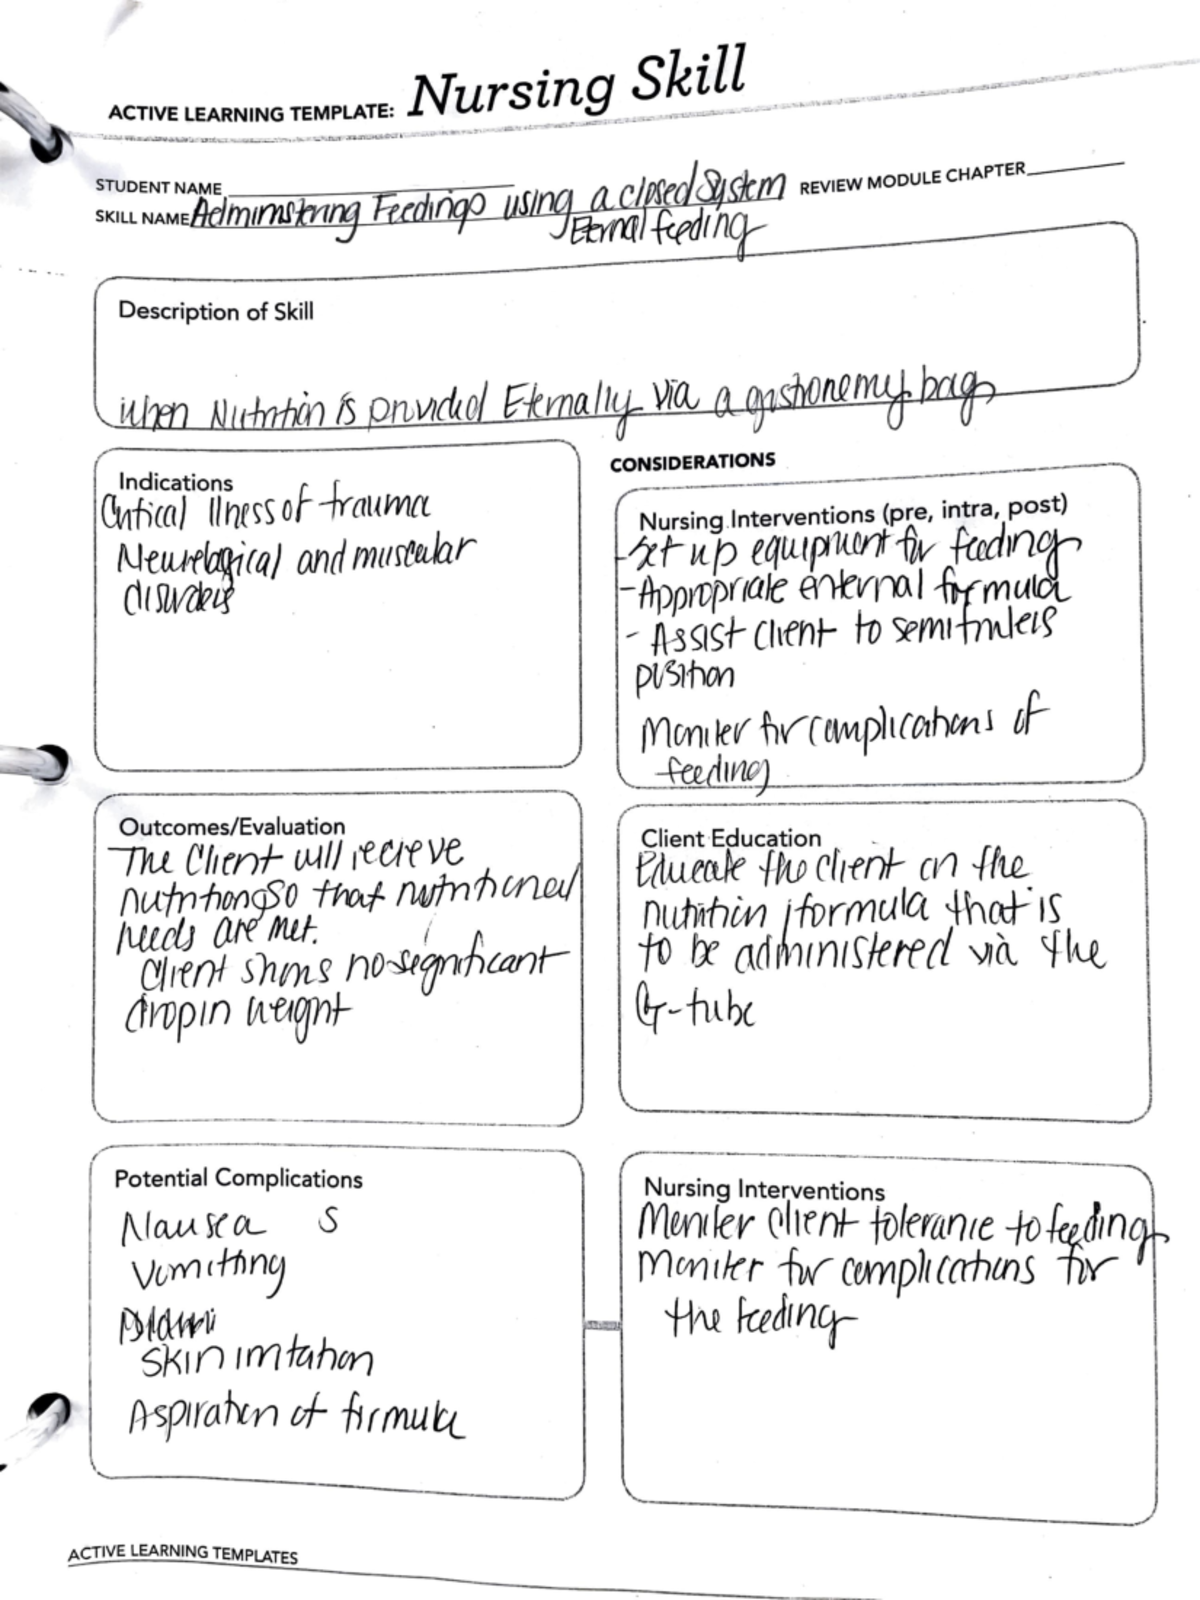 ACTIVE LEARNING TEMPLATE: Nursing Skill
STUDENT NAME
REVIEW MODULE CHAPTER
SKILL NAME Adminstering Feedings using a closed System
Eternal feeding
Description of Skill
when Nutrition is provided Eternally via a gastronemy bag
Indications
Critical Ilness of trauma
Neurological and muscular
disorders
CONSIDERATIONS
Nursing Interventions (pre, intra, post)
-Set up equipment for feeding
-Appropriate enternal formula
- Assist client to semifowlers
position
Moniter for complications of
feeding
Outcomes/Evaluation
The Client will recieve
nutrition so that nutritional
needs are met.
Client shows no significant
drop in weight
Client Education
Educate the client on the
nutrition /formula that is
to be administered via the
G-tube
Potential Complications
Nausea S
Vomitting
Skin irritation
Aspiration of formula
Nursing Interventions
Moniter client tolerance to feeding
Moniter for complications for
the feeding
ACTIVE LEARNING TEMPLATES